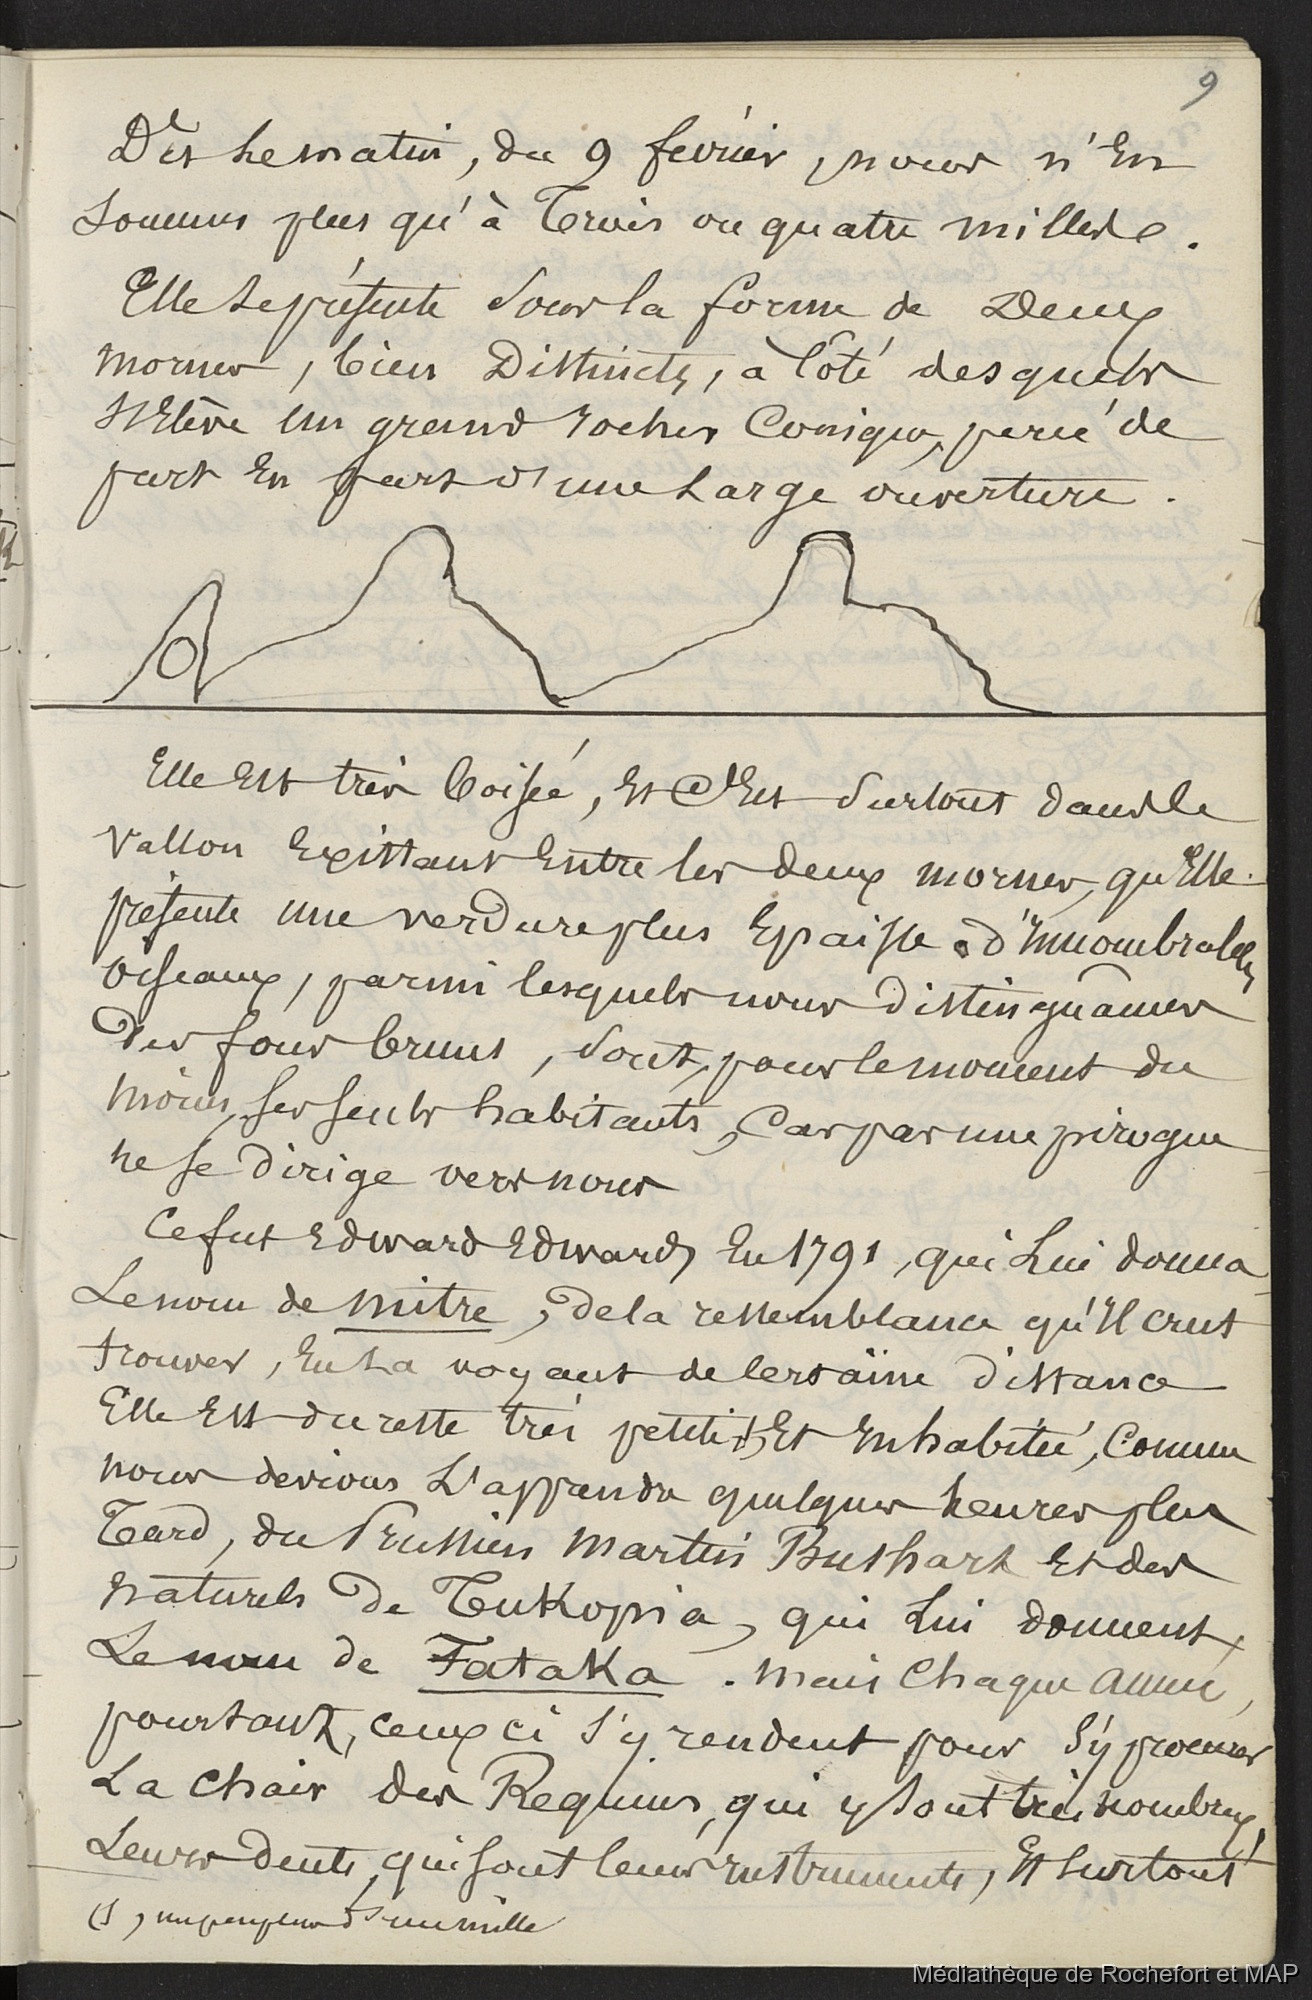 9
Dès le matin, du 9 février, nous n'en
sommes plus qu'à trois ou quatre milles.
Elle se présente sous la forme de deux
mornes, bien distincts, à côté desquels
s'élève un grand rocher conique, percé de
part en part d'une large ouverture.
Elle est très boisée, et c'est surtout dans le
vallon existant entre les deux mornes, qu'elle
présente une verdure plus épaisse. d'innombrables
oiseaux, parmi lesquels nous distinguâmes
des fous bruns, sont, pour le moment du
moins, ses seuls habitants, car pas une pirogue
ne se dirige vers nous
Ce fut Edward Edwards en 1791, qui lui donna
le nom de mitre, de la ressemblance qu'il crut
trouver, en la voyant de certaine distance
Elle est du reste très petite (1) et inhabitée, comme
nous devions l'apprendre quelques heures plus
tard, du Prussien Martin Bushart et des
naturels de Tukopia, qui lui donnent
le nom de Fataka. mais chaque année,
pourtant, ceux ci s'y rendent pour s'y procurer
la chair des Requins, qui y sont très nombreux,
leurs dents, qui font leurs instruments, et surtout
(1) un peu plus d'un mille
Médiathèque de Rochefort et MAP